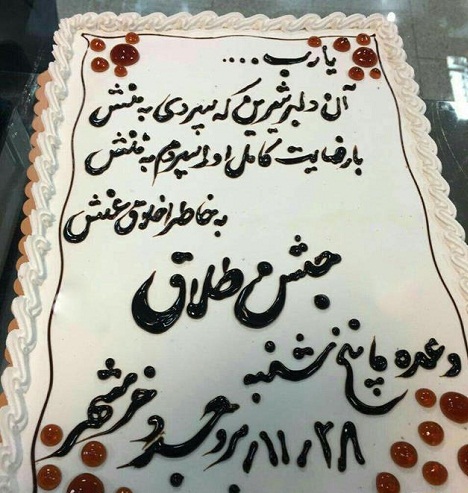 یا رب ....
آن دلبر شیرین که سپردی به منش
با رضایت کامل او را سپردم به ننش
به خاطر اخلاق عنش
جشن طلاق
وعده ما پنج شنبه
۱۱/۲۸ بروجرد خرمشهر